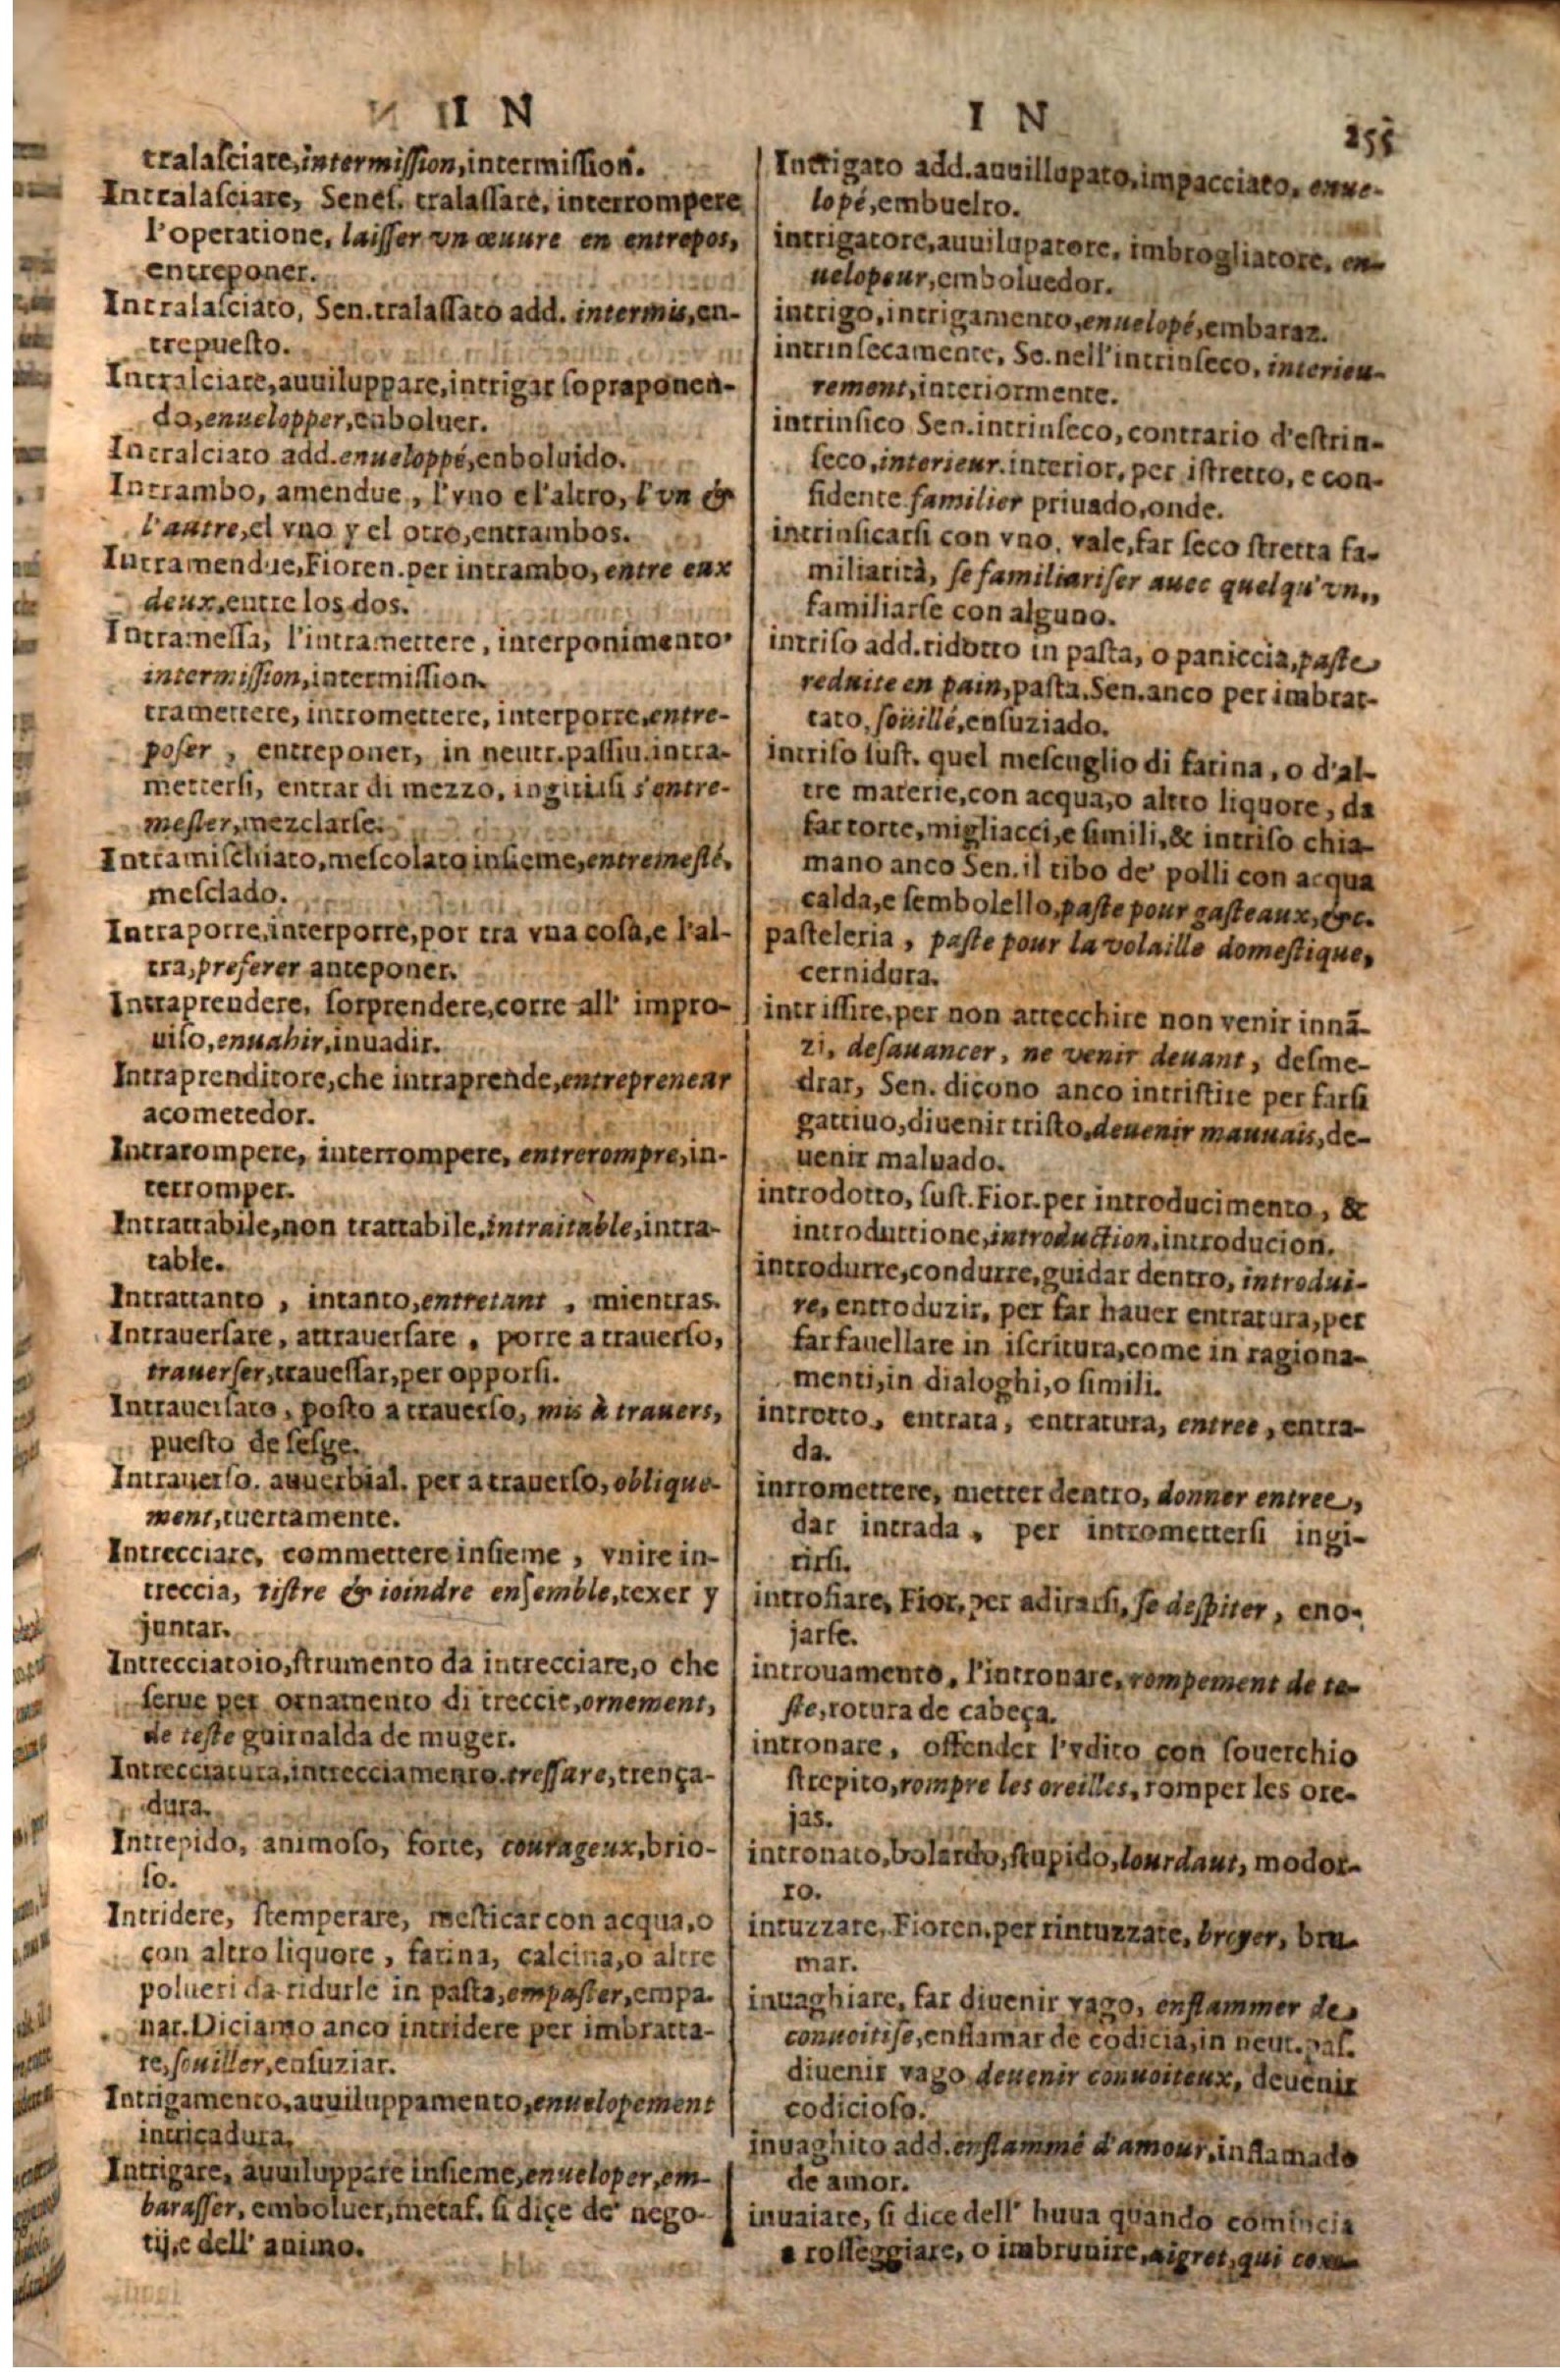 IN
IN
255
tralasciare, intermission, intermission.
Intralasciare, Senes. tralassare, interrompere
l'operatione, laisser vn œuure en entrepos,
entreponer.
Intralasciato, Sen.tralassato add. intermis, en-
trepuesto.
Intralciare, auuiluppare, intrigar soprapponen-
do, enuelopper, enboluer.
Intralciato add. enueloppé, enboluido.
Intrambo, amendue, l'vno e l'altro, l'vn &
l'autre, el vno y el otro, entrambos.
Intramendue, Fioren. per intrambo, entre eux
deux, entre los dos.
Intramessa, l'intramettere, interponimento,
intermission, intermission.
tramettere, intromettere, interporre, entre-
poser, entreponer, in neutr. passiu. intra-
mettersi, entrar di mezzo, s'entre-
mesler, mezclarse.
Intramischiato, mescolato insieme, entremeslé,
mesclado.
Intraporre, interporre, por tra vna cosa, e l'al-
tra, preferer anteponer.
Intraprendere, sorprendere, corre all' impro-
uiso, enuahir, inuadir.
Intraprenditore, che intraprende, entrepreneur
acometedor.
Intrarompere, interrompere, entrerompre, in-
terromper.
Intrattabile, non trattabile, intraitable, intra-
table.
Intrattanto, intanto, entretant, mientras.
Intrauersare, attrauersare, porre a trauerso,
trauerser, trauessar, per opporsi.
Intrauersato, posto a trauerso, mis à trauers,
puesto de sesge.
Intrauerso. auuerbial. per a trauerso, oblique-
ment, tuertamente.
Intrecciare, commettere insieme, vnire in-
treccia, tistre & ioindre ensemble, texer y
juntar.
Intrecciatoio, strumento da intrecciare, o che
serue per ornamento di treccie, ornement,
de teste guirnalda de muger.
Intrecciatura, intrecciamento. tressure, trença-
dura.
Intrepido, animoso, forte, courageux, brio-
so.
Intridere, stemperare, mesticar con acqua, o
con altro liquore, farina, calcina, o altre
polueri da ridurle in pasta, empaster, empa-
nar. Diciamo anco intridere per imbratta-
re, souiller, ensuziar.
Intrigamento, auuiluppamento, enuelopement
intricadura.
Intrigare, auuiluppare insieme, enueloper, em-
barasser, emboluer, metaf. si dice de' nego-
tij, e dell' animo.
Intrigato add. auuillupato, impacciato, enue-
lopé, embuelto.
intrigatore, auuilupatore, imbrogliatore, en-
uelopeur, emboluedor.
intrigo, intrigamento, enuelopé, embaraz.
intrinsecamente, Se. nell'intrinseco, interieu-
rement, interiormente.
intrinsico Sen. intrinseco, contrario d'estrin-
seco, interieur. interior, per istretto, e con-
fidente familier priuado, onde.
intrinsicarsi con vno, vale, far seco stretta fa-
miliarità, se familiariser auec quelqu'vn,,
familiarse con alguno.
intriso add. ridotto in pasta, o paniccia, paste
reduite en pain, pasta. Sen. anco per imbrat-
tato, soüillé, ensuziado.
intriso sust. quel mescuglio di farina, o d'al-
tre materie, con acqua, o altro liquore, da
far torte, migliacci, e simili, & intriso chia-
mano anco Sen. il cibo de' polli con acqua
calda, e sembolello, paste pour gasteaux, &c.
pasteleria, paste pour la volaille domestique,
cernidura.
intrissire, per non attecchire non venir innã-
zi, desauancer, ne venir deuant, desme-
drar, Sen. dicono anco intristire per farsi
gattiuo, diuenir tristo, deuenir mauuais, de-
uenir maluado.
introdotto, sust. Fior. per introducimento, &
introduttione, introduction, introducion.
introdurre, condurre, guidar dentro, introdui-
re, entroduzir, per far hauer entratura, per
far fauellare in iscritura, come in ragiona-
menti, in dialoghi, o simili.
introtto, entrata, entratura, entree, entra-
da.
inrromettere, metter dentro, donner entree,
dar intrada, per intromettersi ingi-
rirsi.
introfiare, Fior. per adirarsi, se despiter, eno-
jarse.
introuamento, l'intronare, rompement de te-
ste, rotura de cabeça.
intronare, offender l'vdito con souerchio
strepito, rompre les oreilles, romper les ore-
jas.
intronato, bolardo, stupido, lourdaut, modor-
ro.
intuzzare, Fioren. per rintuzzare, breyer, bru-
mar.
inuaghiare, far diuenir vago, enflammer de
conuoitise, enflamar de codicia, in neut. pas.
diuenir vago deuenir conuoiteux, deuenir
codicioso.
inuaghito add. enflammé d'amour, inflamado
de amor.
inuaiare, si dice dell' huua quando comincia
a rosseggiare, o imbrunire, aigret, qui com-